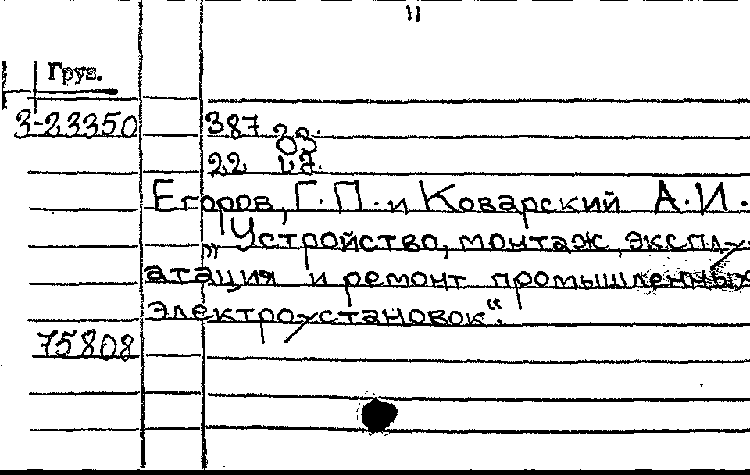 11
Груз.
3-23350 387 23.
03
22 и7.
Егоров, Г.П. и Коварский А.И.
„Устройство, монтаж, эксплу-
атация и ремонт промышленных
электроустановок“.
75808